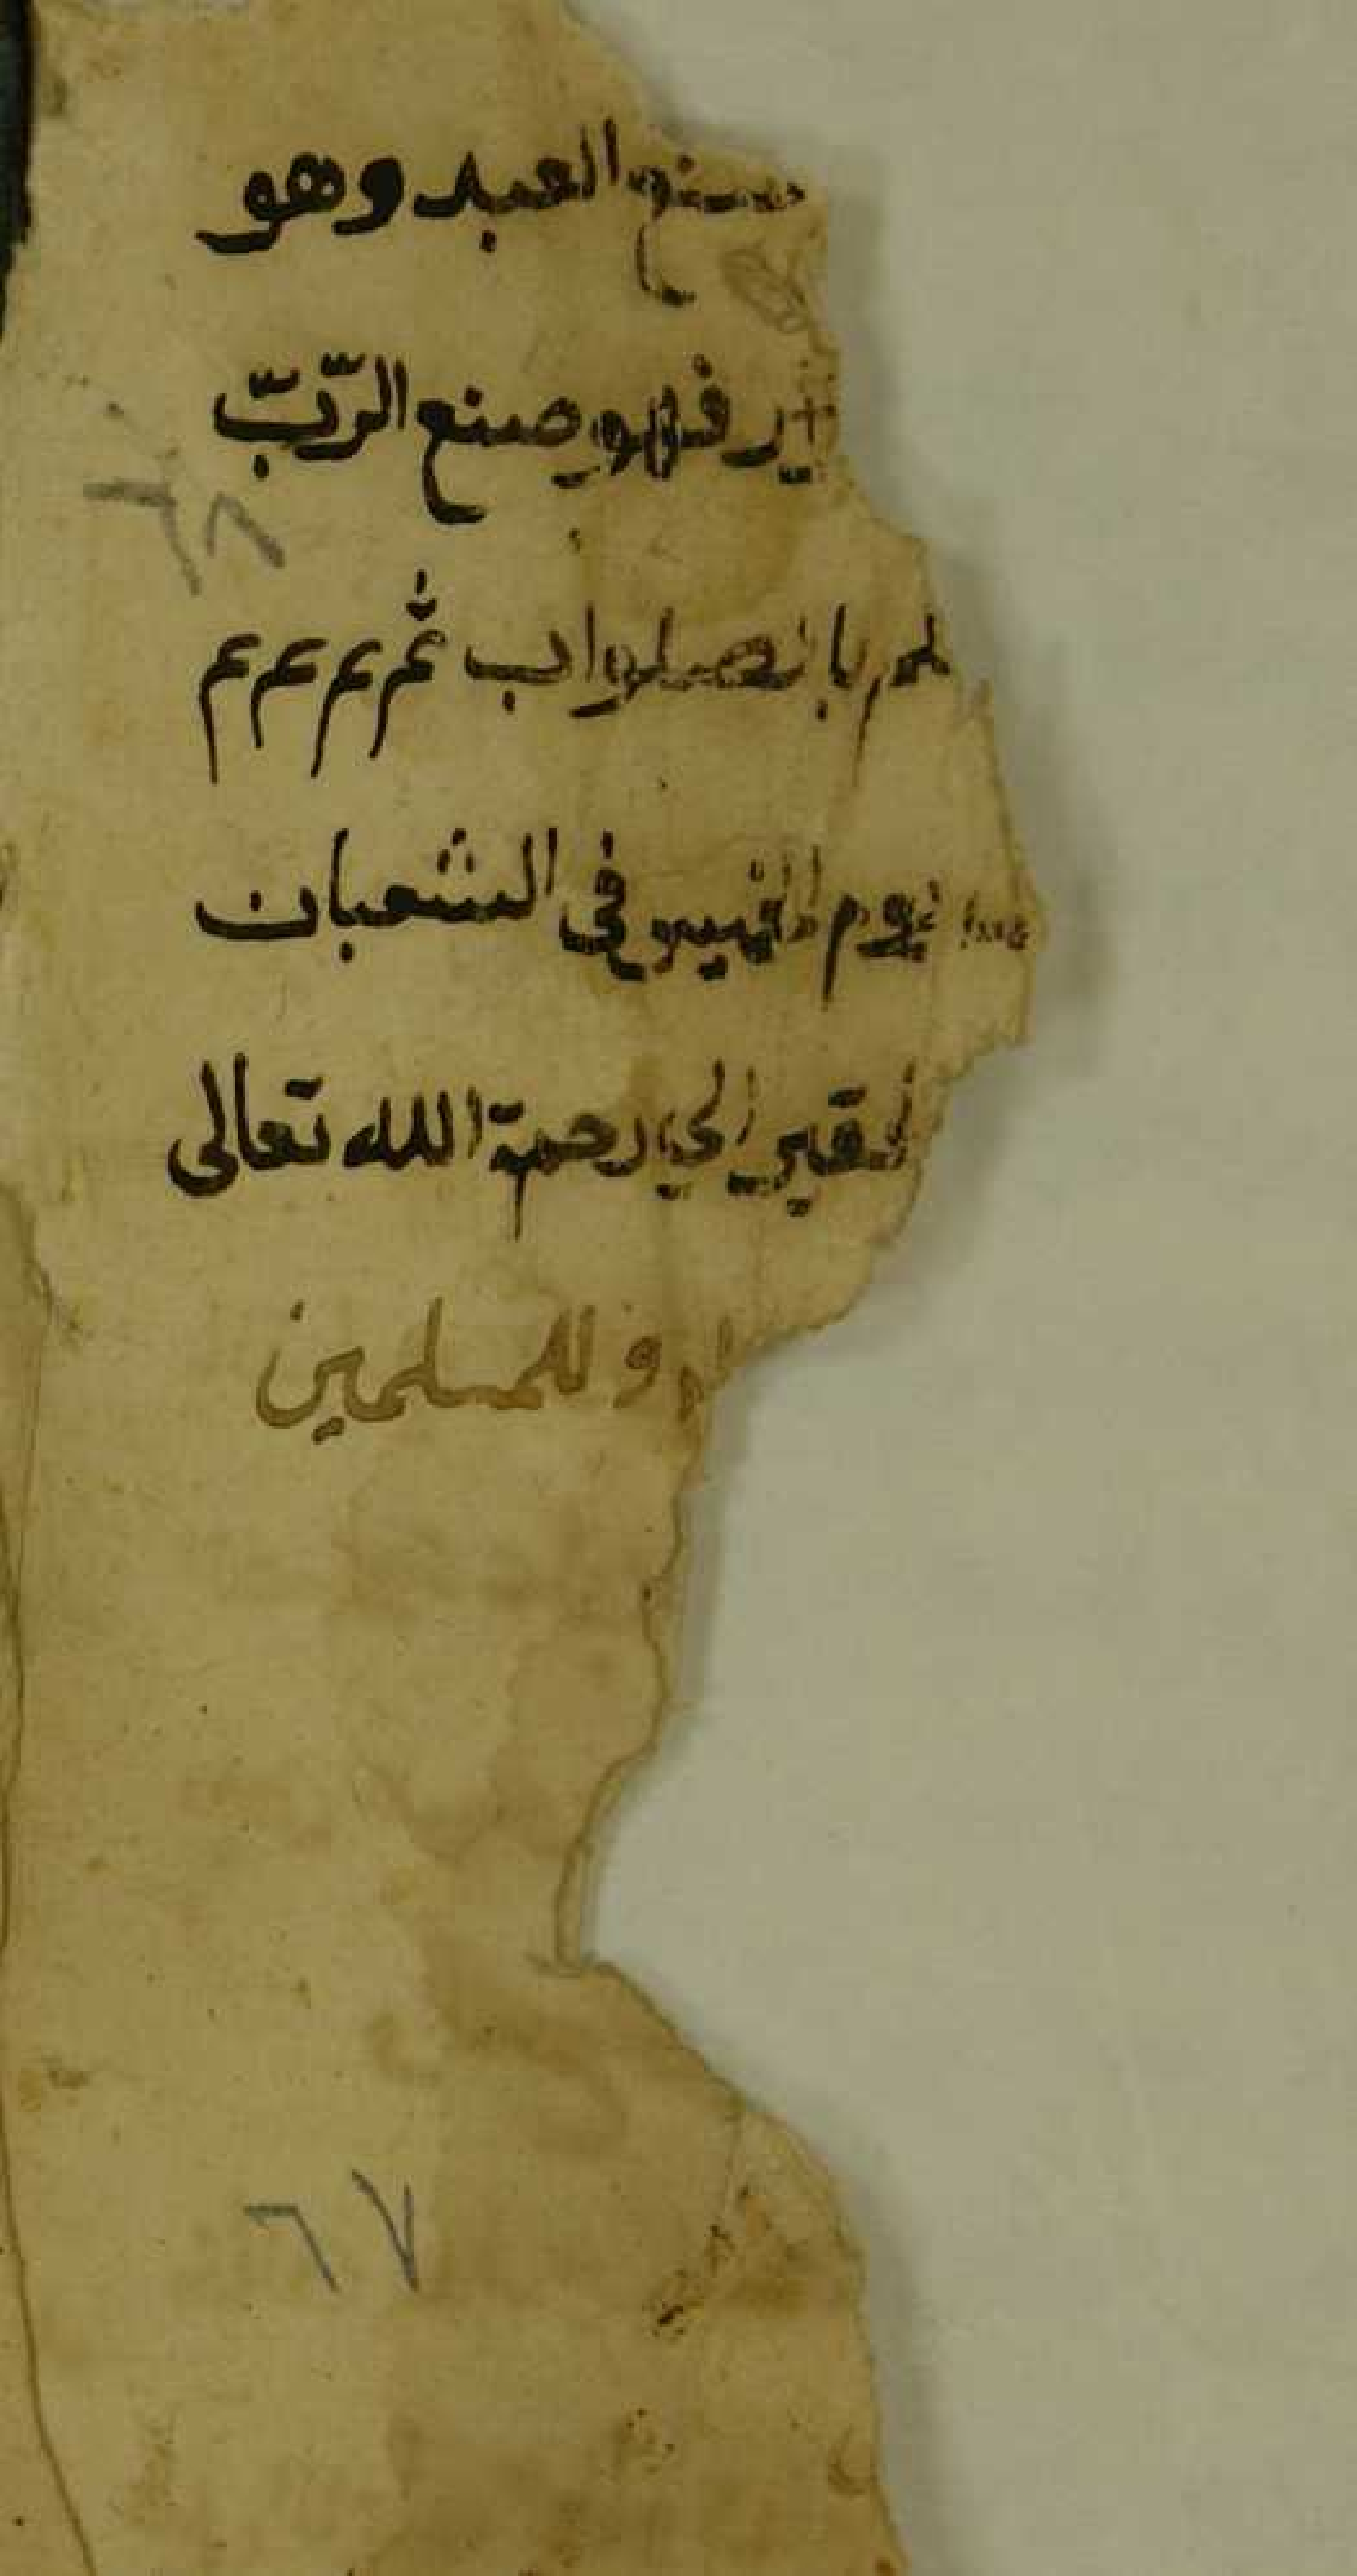 صنع العبد وهو
ير فهو صنع الرّبّ
٦٨
لم بالصواب ثم م م م
يوم الخميس في الشعبان
الفقير الى رحمة الله تعالى
وللمسلمين
٦٧